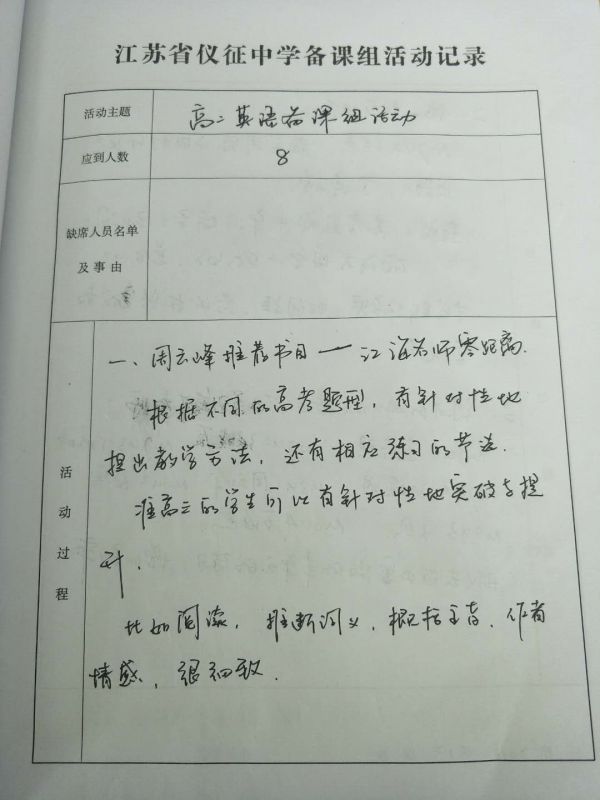 江苏省仪征中学备课组活动记录
活动主题 高二英语备课组活动
应到人数 8
缺席人员名单
及事由
活动过程
一、周云峰推荐书目——江海名师零距离.
根据不同的高考题型，有针对性地
提出教学方法，还有相应练习的节选.
准高三的学生可以有针对性地突破与提
升.
比如阅读，推断词义，概括主旨，作者
情感，很细致.